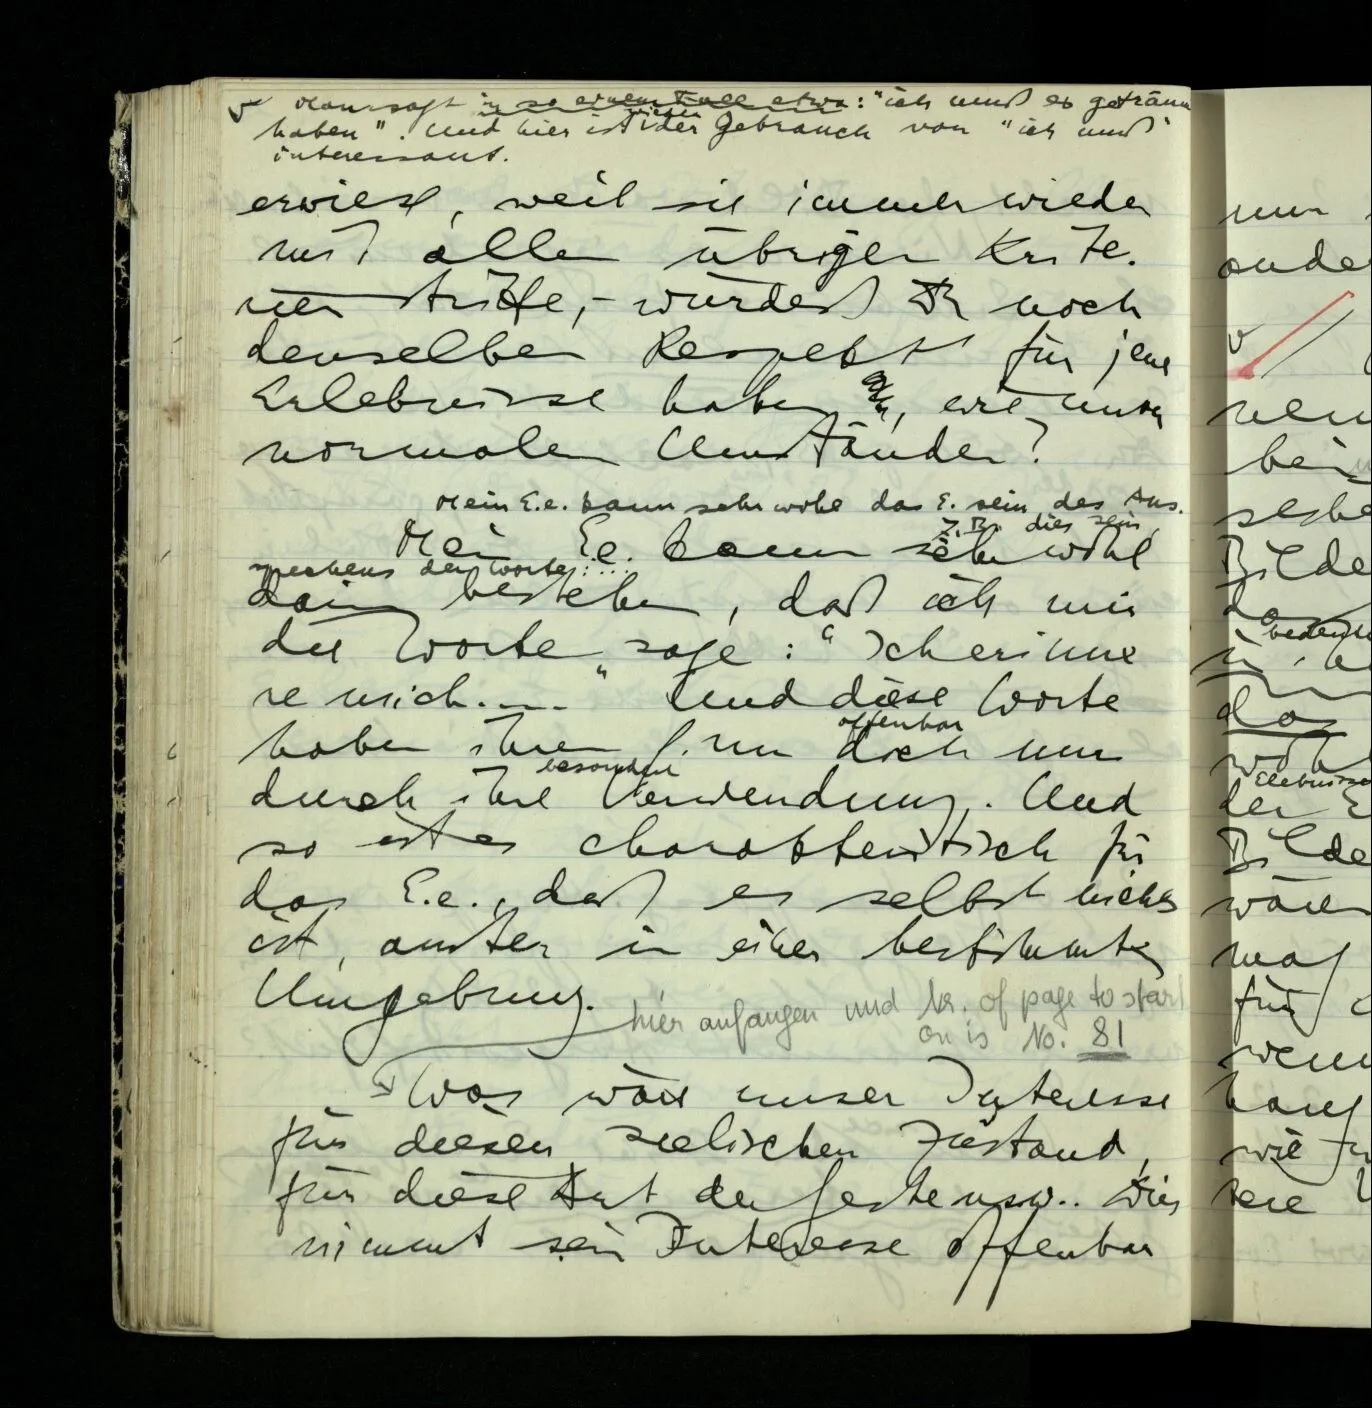 v Man sagt in so einem Fall etwa: "ich muß es geträumt
haben". Und hier ist wieder der Gebrauch von "ich muß"
interessant.
erwiese, weil sie immer wieder
mit allen übrigen Krite-
rien stritte, – würdest Du noch
denselben Respekt für jene
Erlebnisse haben, wie unter
normalen Umständen?
Mein E.e. kann sehr wohl das E. sein des Aus-
z.B. dies sein,
Mein E.e. kann sehr wohl
sprechens der Worte: ....
darin bestehen, daß ich mir
die Worte sage: "Ich erinne-
re mich...." Und diese Worte
offenbar
haben ihren Sinn doch nur
besondere
durch ihre Verwendung. Und
so ist es charakteristisch für
das E.e., daß es selbst nichts
ist, außer in einer bestimmten
Umgebung.
hier anfangen und Nr. of page to start
on is No. 81
Was wäre unser Interesse
für diesen seelischen Zustand,
für diese Art der Geste usw.. Dies
nimmt sein Interesse offenbar
nur
ande
v
bei
Bilde
das
wohl
der E
Bilde
wären
mag
für
wenn
wie